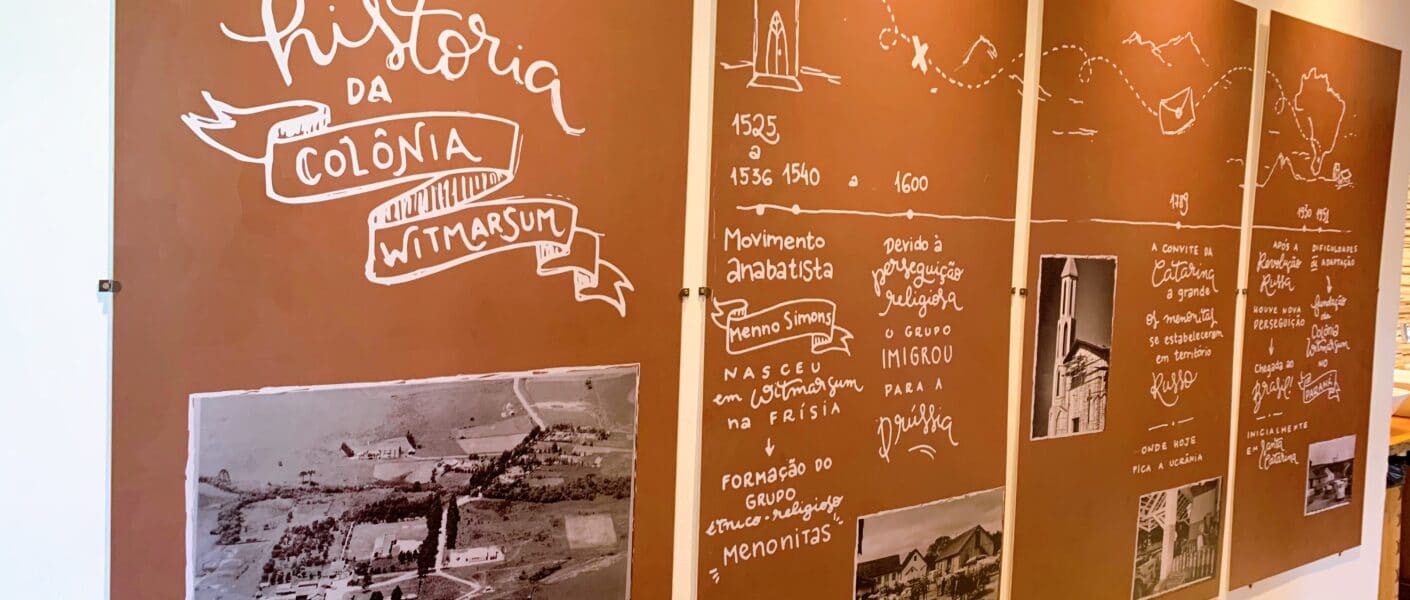 história
DA
COLÔNIA
WITMARSUM
1525
a
1536
1540
a
1600
Movimento
anabatista
Menno Simons
NASCEU
em Witmarsum
na FRÍSIA
FORMAÇÃO DO
GRUPO
étnico-religioso
"MENONITAS"
DEVIDO À
perseguição
religiosa
O GRUPO
IMIGROU
PARA A
Prússia
1789
A CONVITE DA
Catarina
a grande
os menonitas
se estabeleceram
em território
Russo
ONDE HOJE
FICA A UCRÂNIA
1930
1951
APÓS A
Revolução
Russa
HOUVE NOVA
PERSEGUIÇÃO
Chegada ao
Brasil!
INICIALMENTE
EM Santa
Catarina
DIFICULDADES
DE ADAPTAÇÃO
fundação
da
Colônia
Witmarsum
NO
PARANÁ